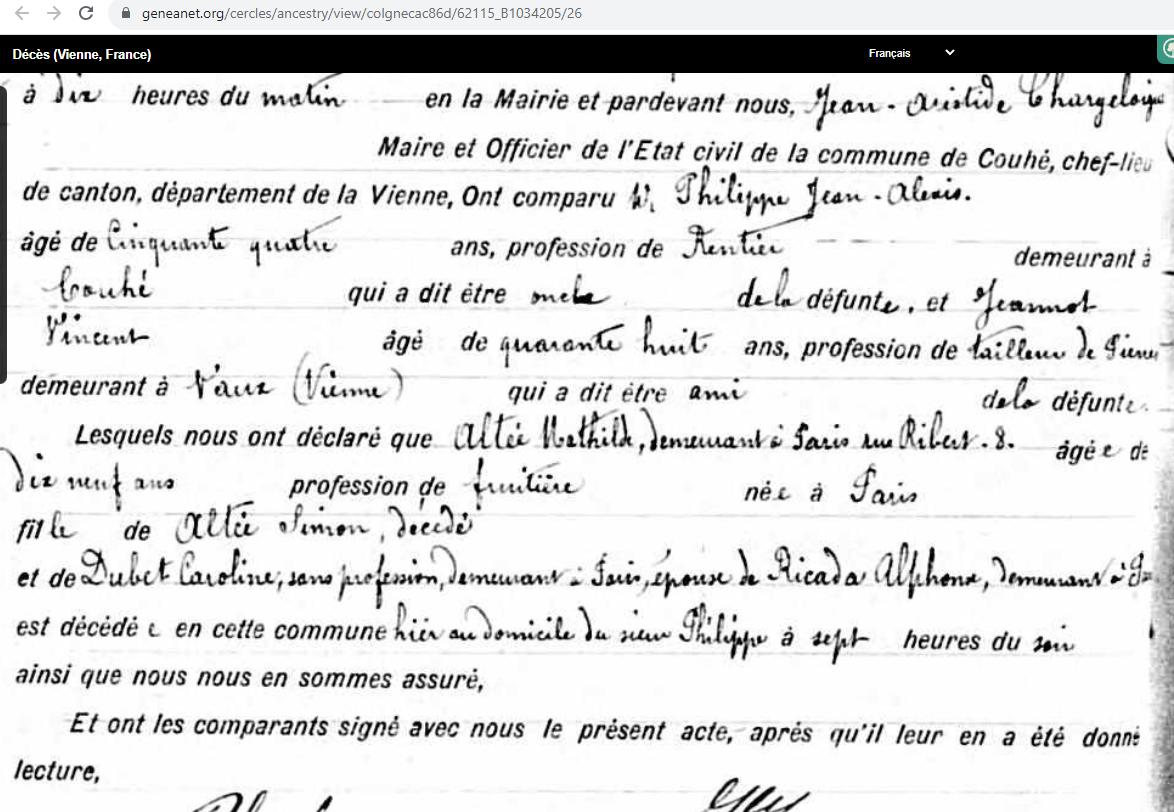 geneanet.org/cercles/ancestry/view/colgnecac86d/62115_B1034205/26
Décès (Vienne, France) Français
à dix heures du matin en la Mairie et pardevant nous, Jean-Aristide
Maire et Officier de l'Etat civil de la commune de Couhé, chef-lieu
de canton, département de la Vienne, Ont comparu M. Philippe Jean-Alexis.
âgé de Cinquante quatre ans, profession de Rentier demeurant à
Couhé qui a dit être oncle de la défunte, et Jeannot
Vincent âgé de quarante huit ans, profession de tailleur de Pierre
demeurant à Vaux (Vienne) qui a dit être ami de la défunte.
Lesquels nous ont déclaré que Altée Mathilde, demeurant à Paris rue Ribert. 8. âgée de
dix neuf ans profession de fruitière née à Paris
fille de Altée Simon, décédé
et de Dubet Caroline, sans profession, demeurant à Paris, épouse de Ricada Alphonse, demeurant à
est décédée en cette commune hier au domicile du sieur Philippe à sept heures du soir
ainsi que nous nous en sommes assuré,
Et ont les comparants signé avec nous le présent acte, après qu'il leur en a été donné
lecture,